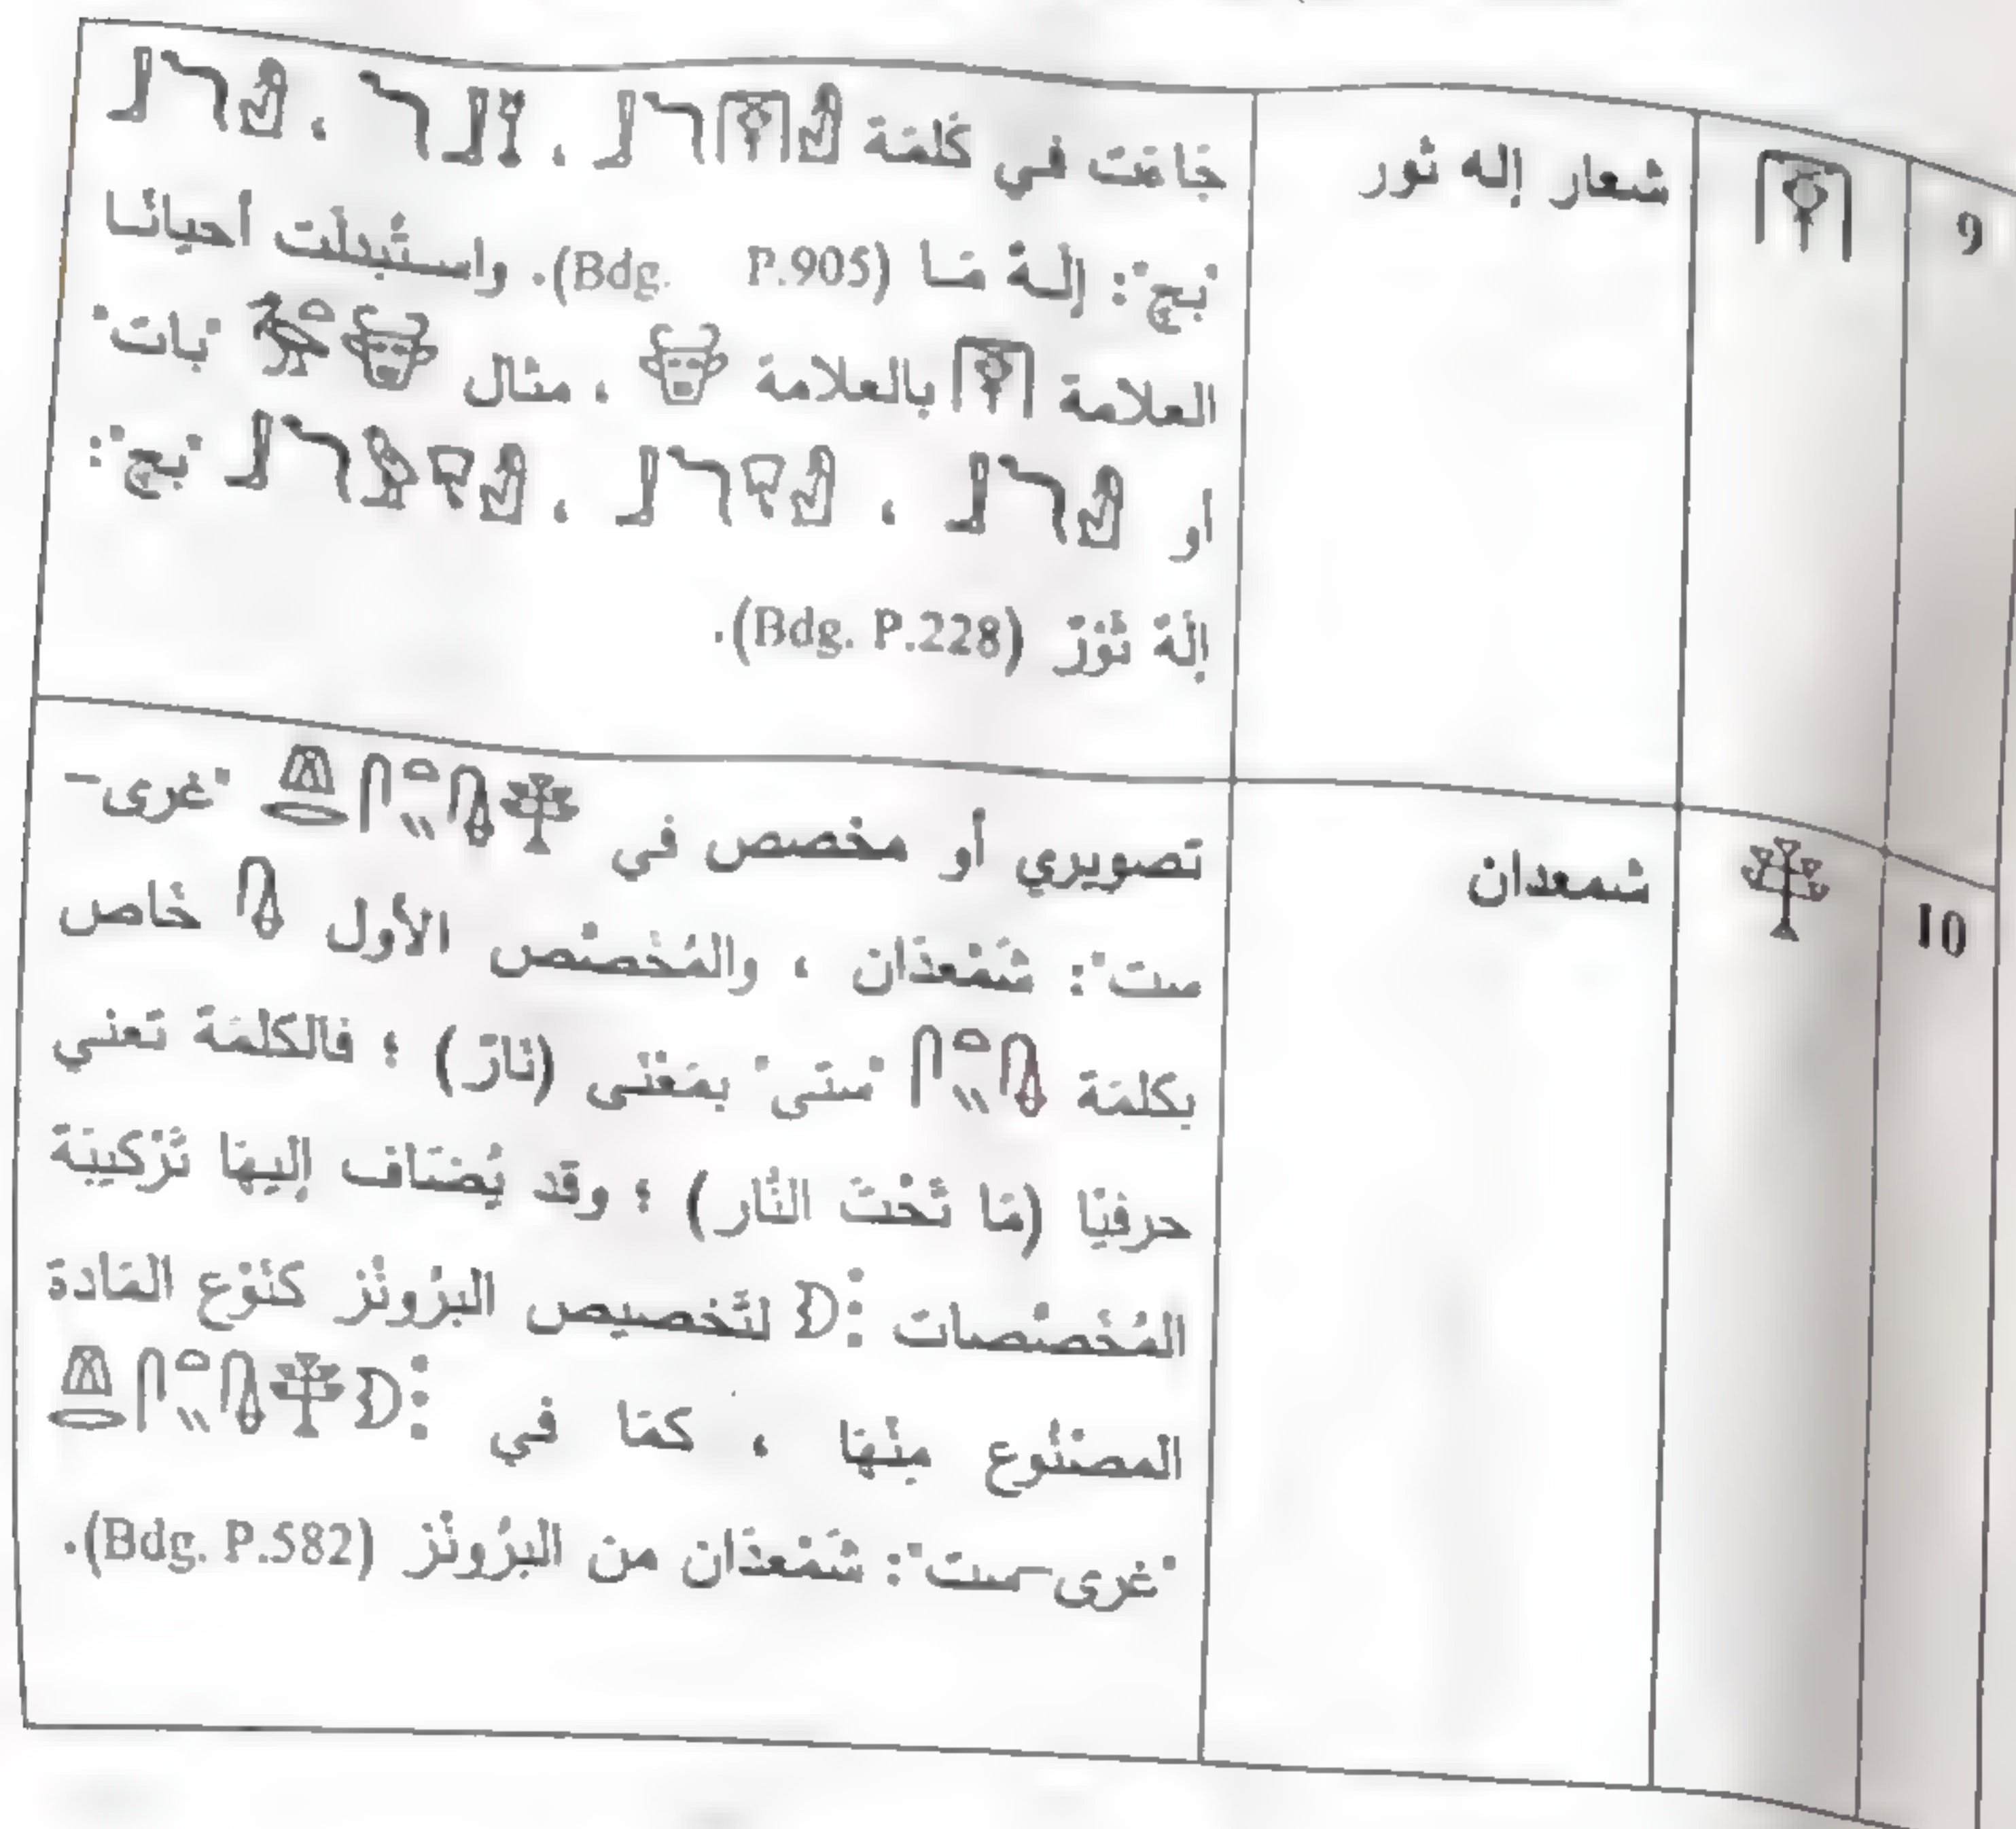 9
شعار إله ثور
جَاءَت في كَلمَة ، ،
"بچ": إلـهٌ مَـا (Bdg. P.905). واسـتُبدلَت أحيانًـا
العلامة بالعلامة ، مثال "بات"
أو ، ، "بچ":
إلَهٌ ثَوْرٌ (Bdg. P.228).
10
شمعدان
تصويري أو مخصص في "غرى-
ست": شَمْعدَان ، والمُخَصصْص الأول خَاص
بكلمَة "ستى" بمَعْنَى (نَارٌ) ؛ فالكلمَة تَعني
حرفيًا (مَا تَحْتَ النَّار) ؛ وقد يُضَاف إليهَا تَرْكيبَة
المُخَصصَات لتَخصيص البرُونْز كنَوْع المَادة
المصنُوع مِنْهَا ، كمَا في
"غرى-ست": شَمْعدَان من البرُونْز (Bdg. P.582).